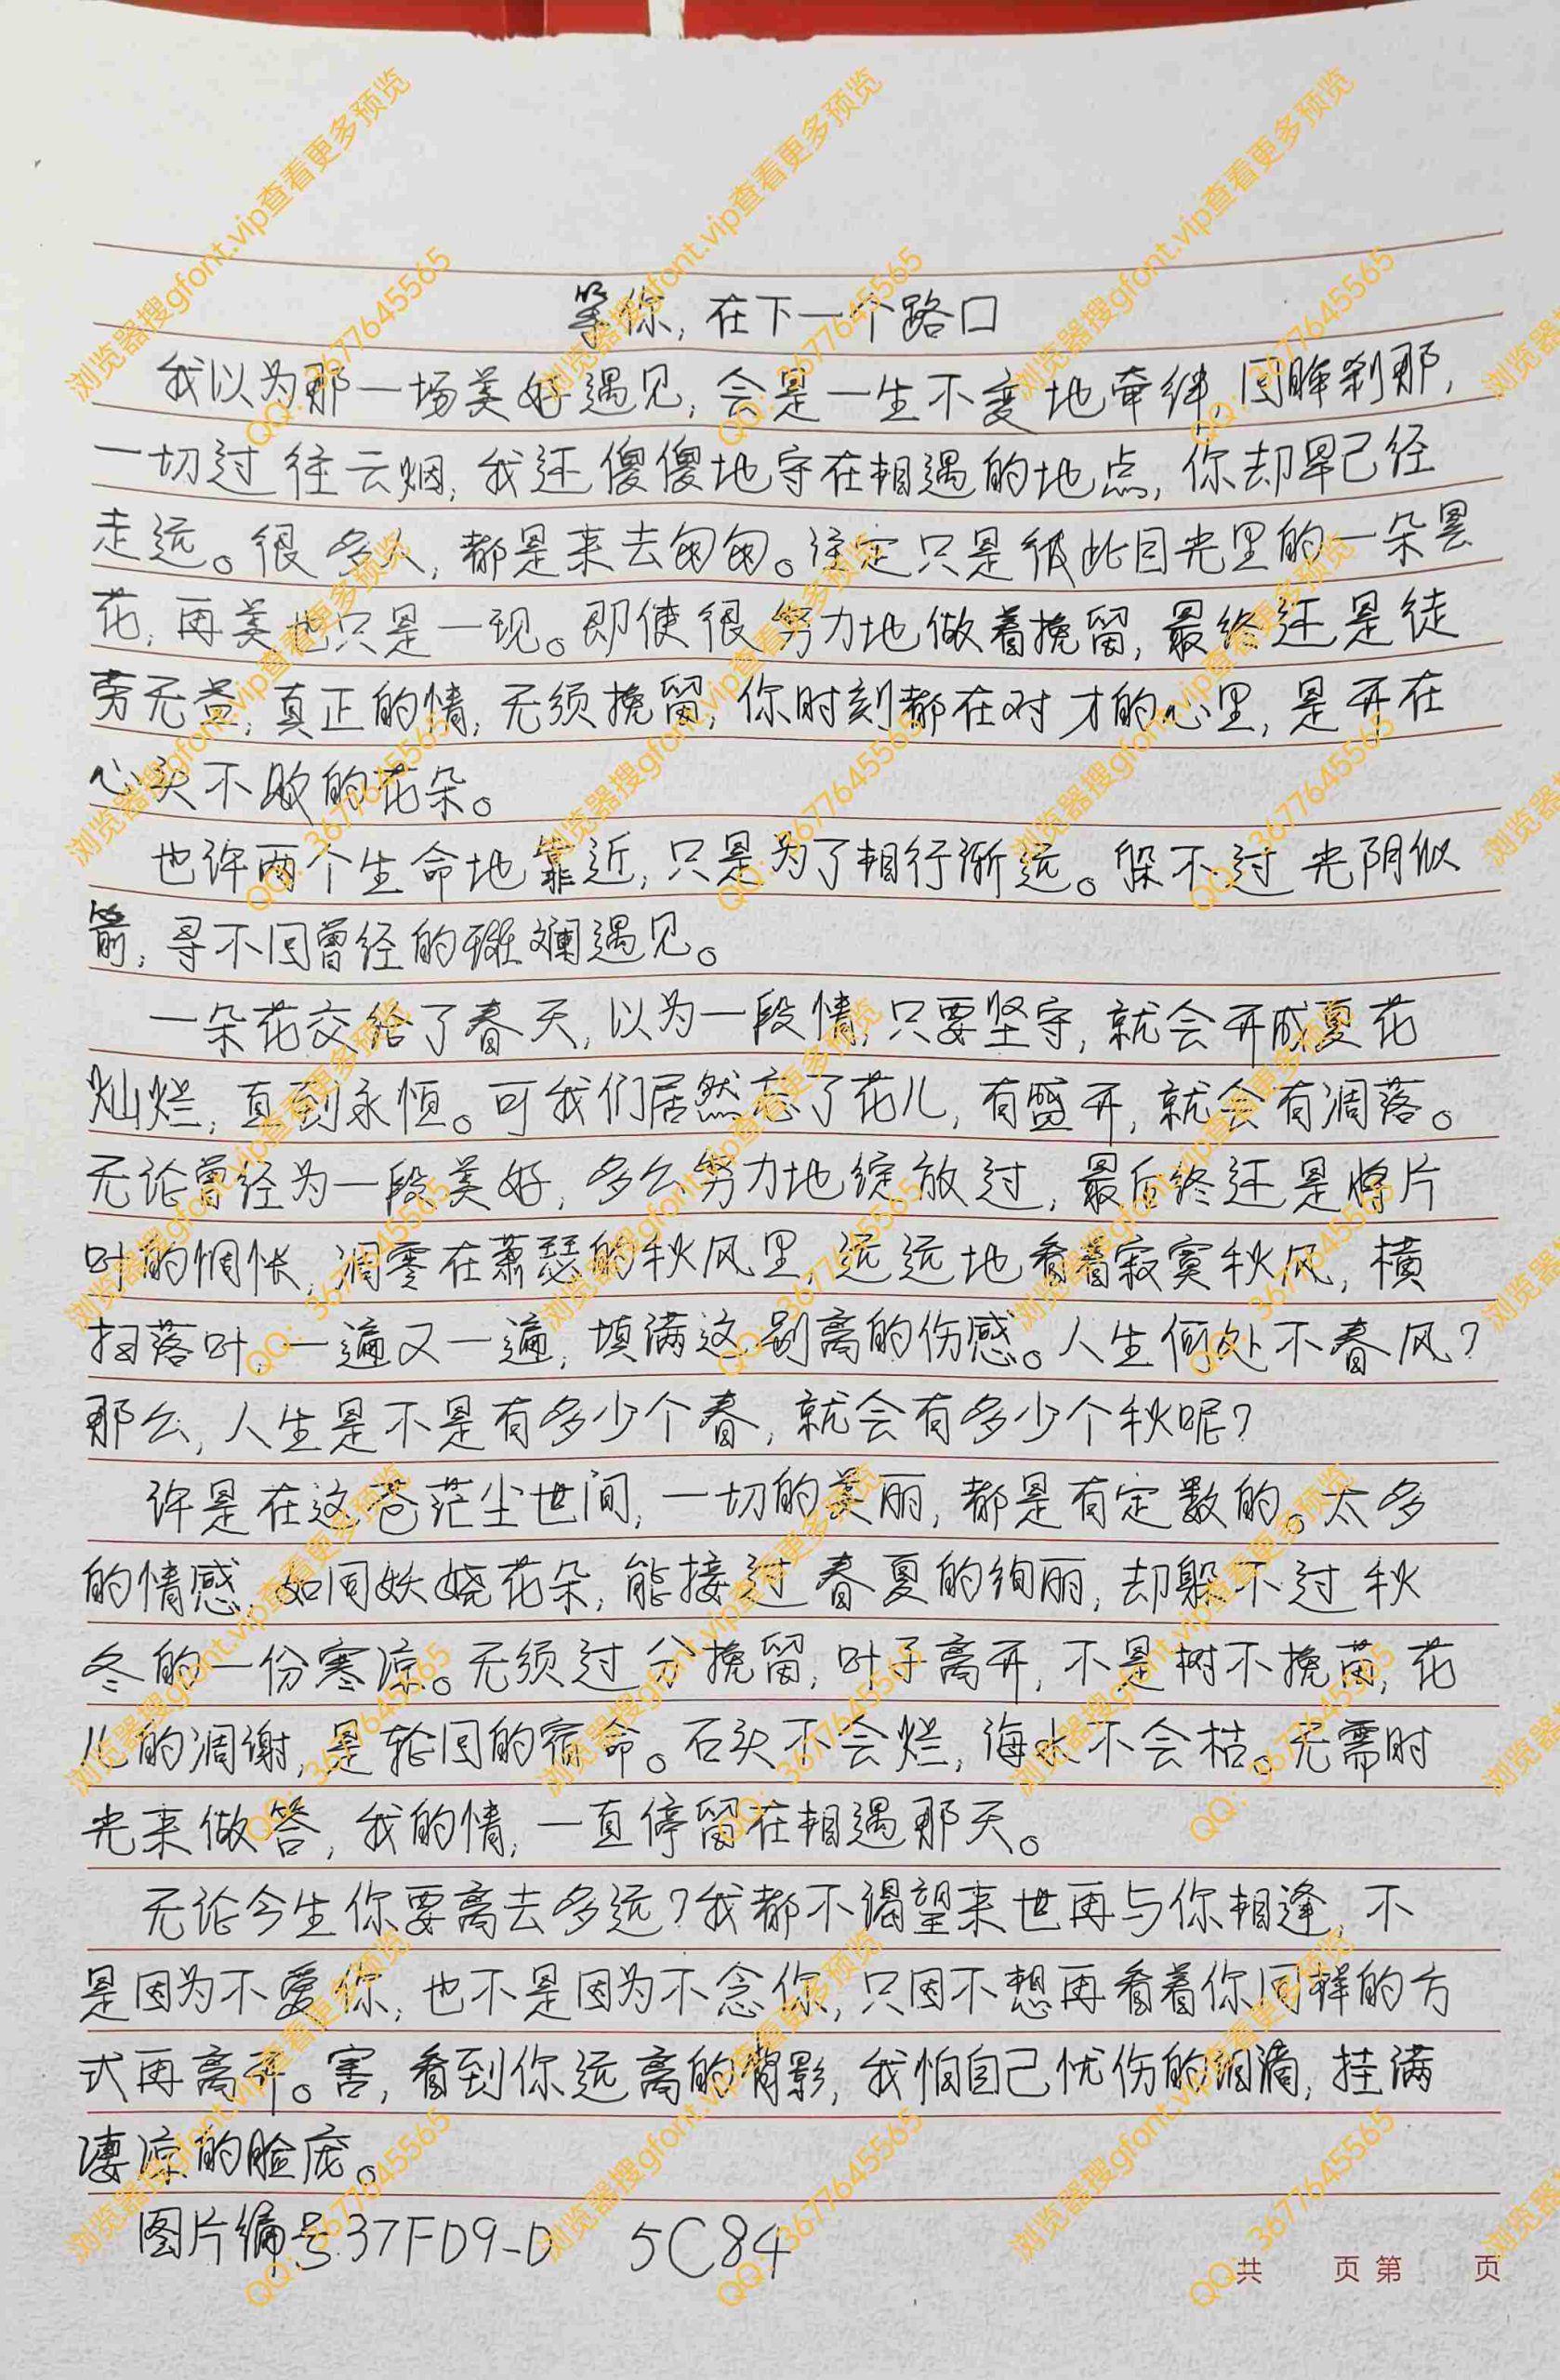 等你,在下一个路口
我以为那一场美好遇见,会是一生不变地牵绊,回眸刹那,
一切过往云烟,我还傻傻地守在相遇的地点,你却早已经
走远。很多人,都是来去匆匆。注定只是彼此目光里的一朵昙
花,再美也只是一现。即使很努力地做着挽留,最终还是徒
劳无益,真正的情,无须挽留,你时刻都在对才的心里,是开在
心头不败的花朵。
也许两个生命地靠近,只是为了相行渐远。躲不过光阴似
箭,寻不回曾经的斑斓遇见。
一朵花交给了春天,以为一段情,只要坚守,就会开成夏花
灿烂,直到永恒。可我们居然忘了花儿,有盛开,就会有凋落。
无论曾经为一段美好,多么努力地绽放过,最后终还是将片
叶的惆怅,凋零在萧瑟的秋风里,远远地看着寂寞秋风,横
扫落叶,一遍又一遍,填满这别离的伤感。人生何处不春风?
那么,人生是不是有多少个春,就会有多少个秋呢?
许是在这苍茫尘世间,一切的美丽,都是有定数的。太多
的情感,如同妖娆花朵,能接过春夏的绚丽,却躲不过秋
冬的一份寒凉。无须过分挽留,叶子离开,不是树不挽留,花
儿的凋谢,是轮回的宿命。石头不会烂,海水不会枯。无需时
光来做答,我的情,一直停留在相遇那天。
无论今生你要离去多远?我都不渴望来世再与你相逢,不
是因为不爱你,也不是因为不念你,只因不想再看着你同样的方
式再离开。害,看到你远离的背影,我怕自己忧伤的泪滴,挂满
凄凉的脸庞。
图片编号:37FD9-D 5C84
共 页 第 页
浏览器搜gfont.vip查看更多预览
QQ:3677645565